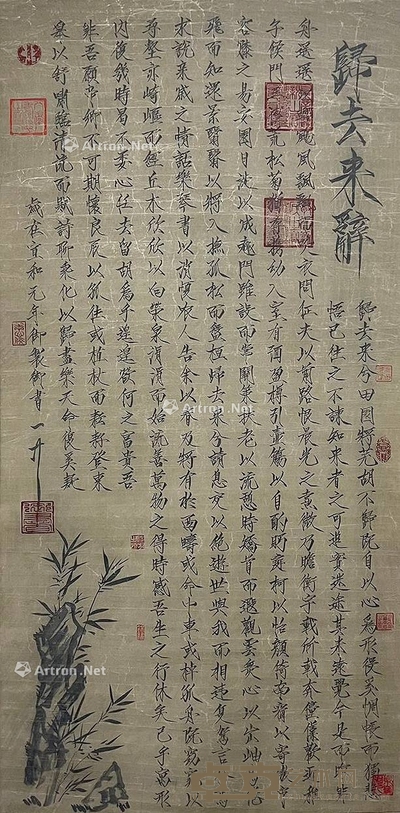 歸去来辭
歸去来兮田園將蕪胡不歸既自以心為形役奚惆悵而獨悲
悟已往之不諫知来者之可追實迷途其未遠覺今是而昨非
舟遥遥以風飄飄而吹衣問征夫以前路恨晨光之熹微乃瞻衡宇載欣載奔僮僕歡迎稚
子候門三徑就荒松菊猶存携幼入室有酒盈樽引壺觴以自酌眄庭柯以怡顔倚南窗以寄傲審
容膝之易安園日涉以成趣門雖設而常關策扶老以流憩時矯首而遐觀雲無心以出岫鳥
飛而知還景翳翳以將入撫孤松而盤桓歸去来兮請息交以絶遊世與我而相違復駕言兮
求説親戚之情話樂琴書以消憂農人告余以春及將有於西疇或命巾車或棹孤舟既窈窕以
尋壑亦崎嶇而經丘木欣欣以向榮泉涓涓而始流善萬物之得時感吾生之行休矣已乎寓形
内復幾時曷不委心任去留胡為乎遑遑欲何之富貴吾
非吾願帝鄉不可期懷良辰以孤往或植杖而耘耔登東
皋以舒嘯臨清流而賦詩聊乘化以歸盡樂天命復奚疑
歲在宣和元年御製御書 一升
Artron.Net
Artron.Net
Artron.Net
Artron.Net
Artron.Net